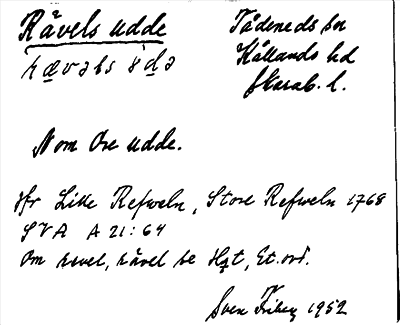 Rävels udde Tådene ds sn
rævəls ùdə Kållands hd
Skarab. l.
Nom Ore udde.
Jfr Lille Refweln, Store Refweln 1768
SVA A 21:64
Om revel, rävel se Hqt, Et. ord.
Sven Friberg 1952